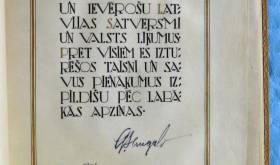 UN IEVĒROŠU LAT-
VIJAS SATVERSMI
UN VALSTS LIKUMUS.
PRET VISIEM ES IZTU-
RĒŠOS TAISNI UN SA-
VUS PIENĀKUMUS IZ-
PILDĪŠU PĒC LABĀ-
KĀS APZIŅAS.